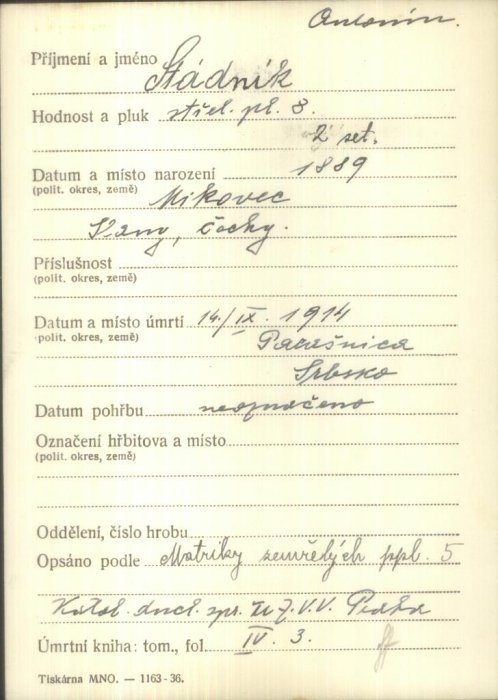 Antonín.
Příjmení a jméno Stádník
Hodnost a pluk střel. pl. 8.
2 set.
Datum a místo narození 1889
(polit. okres, země) Mikovec
Slaný, Čechy.
Příslušnost
(polit. okres, země)
Datum a místo úmrtí 14./IX. 1914
(polit. okres, země) Parašnica
Srbsko
Datum pohřbu neoznačeno
Označení hřbitova a místo
(polit. okres, země)
Oddělení, číslo hrobu
Opsáno podle Matriky zemřelých ppl. 5
Katol. duch. spr. Z.V.V. Praha
Úmrtní kniha: tom., fol. IV. 3.
Tiskárna MNO. — 1163-36.